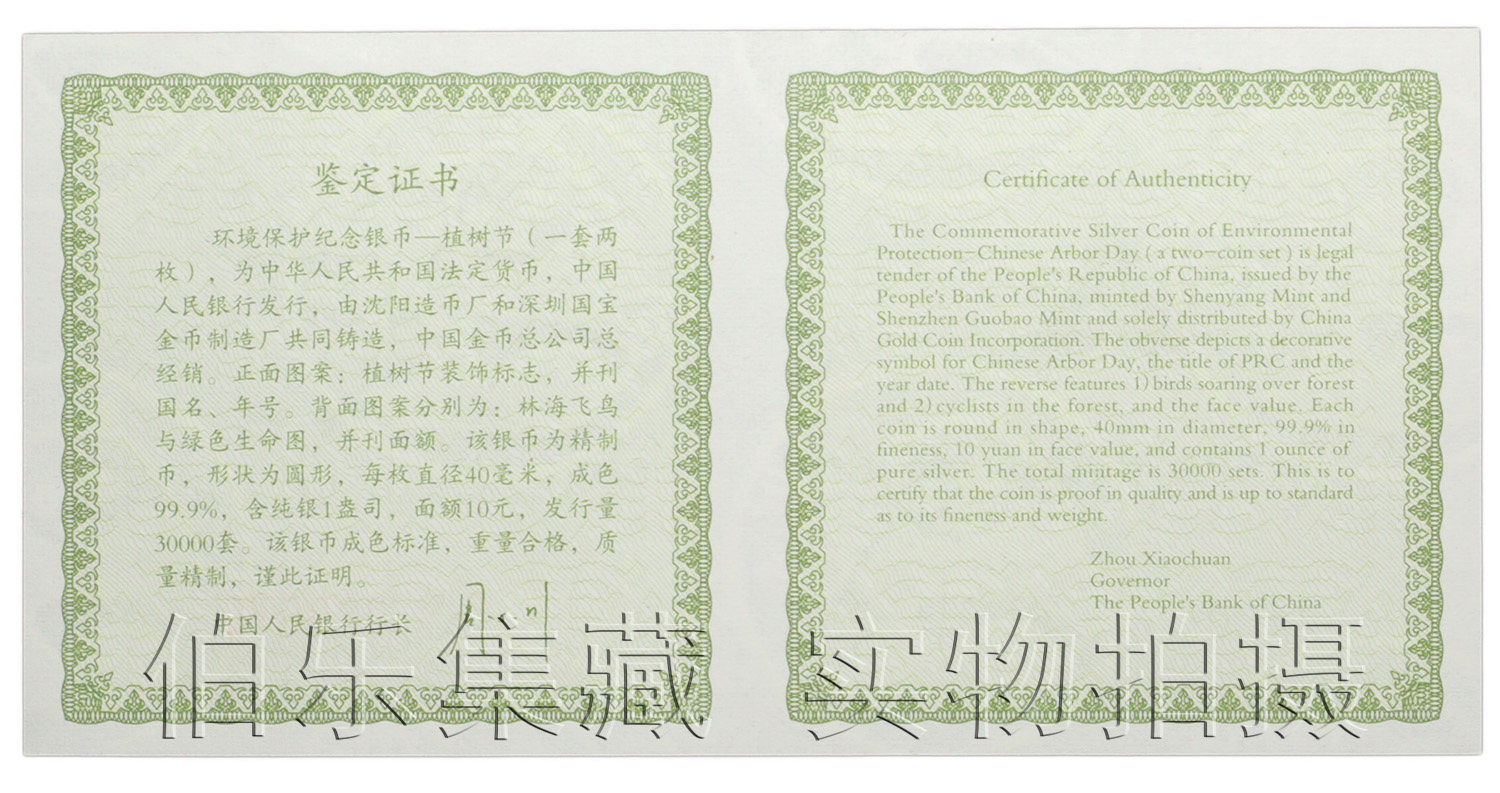 鉴定证书
环境保护纪念银币—植树节（一套两
枚），为中华人民共和国法定货币，中国
人民银行发行，由沈阳造币厂和深圳国宝
金币制造厂共同铸造，中国金币总公司总
经销。正面图案：植树节装饰标志，并刊
国名、年号。背面图案分别为：林海飞鸟
与绿色生命图，并刊面额。该银币为精制
币，形状为圆形，每枚直径40毫米，成色
99.9%，含纯银1盎司，面额10元，发行量
30000套。该银币成色标准，重量合格，质
量精制，谨此证明。
中国人民银行行长
Certificate of Authenticity
The Commemorative Silver Coin of Environmental
Protection—Chinese Arbor Day（a two—coin set）is legal
tender of the People's Republic of China, issued by the
People's Bank of China, minted by Shenyang Mint and
Shenzhen Guobao Mint and solely distributed by China
Gold Coin Incorporation. The obverse depicts a decorative
symbol for Chinese Arbor Day, the title of PRC and the
year date. The reverse features 1) birds soaring over forest
and 2) cyclists in the forest, and the face value. Each
coin is round in shape, 40mm in diameter, 99.9% in
fineness, 10 yuan in face value, and contains 1 ounce of
pure silver. The total mintage is 30000 sets. This is to
certify that the coin is proof in quality and is up to standard
as to its fineness and weight.
Zhou Xiaochuan
Governor
The People's Bank of China
伯乐集藏 实物拍摄